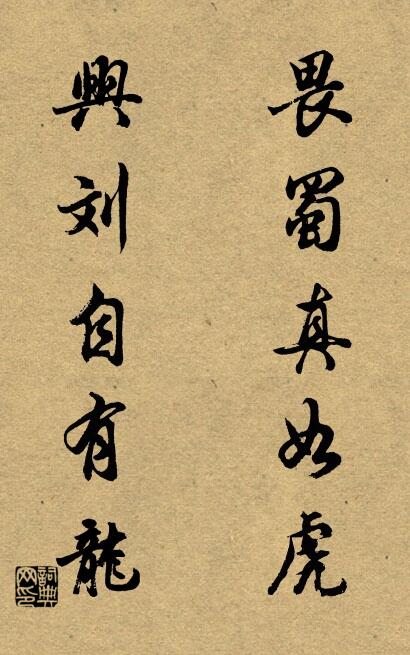 畏蜀真如虎
興刘自有龍
詞典网印